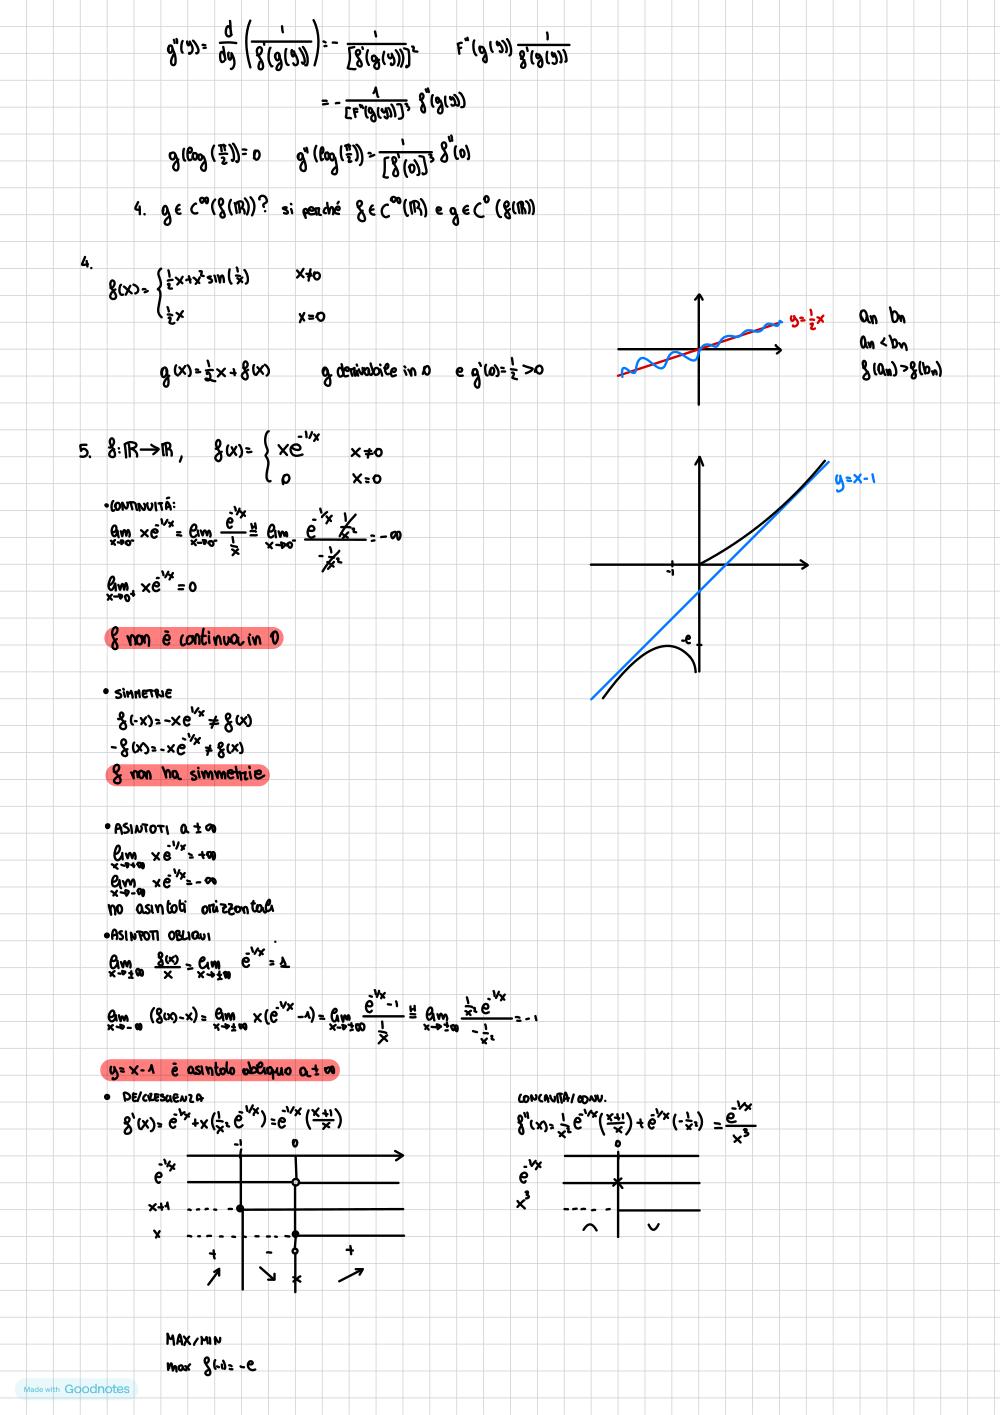 g''(y) = d/dy (1/f'(g(y))) = - 1/[f'(g(y))]² F''(g(y)) 1/f'(g(y))
= - 1/[F''(g(y))]³ f''(g(y))
g(log(π/2)) = 0 g''(log(π/2)) = 1/[f'(0)]³ f''(0)
4. g ∈ C^∞(f(ℝ))? si perché f ∈ C^∞(ℝ) e g ∈ C⁰(f(ℝ))
4.
f(x) = { 1/2 x + x² sin(1/x) x≠0
1/2 x x=0
y = 1/2 x
an bn
an < bn
f(an) > f(bn)
g(x) = 1/2 x + f(x) g derivabile in 0 e g'(0) = 1/2 > 0
5. f: ℝ → ℝ, f(x) = { xe^(-1/x) x≠0
0 x=0
y = x-1
-1
-e
• CONTINUITÀ:
lim x→0⁻ xe^(-1/x) = lim x→0⁻ e^(-1/x) / (1/x) =^H lim x→0⁻ e^(-1/x) 1/x² / (-1/x²) = -∞
lim x→0⁺ xe^(-1/x) = 0
f non è continua in 0
• SIMMETRIE
f(-x) = -xe^(1/x) ≠ f(x)
-f(x) = -xe^(-1/x) ≠ f(x)
f non ha simmetrie
• ASINTOTI a ±∞
lim x→+∞ xe^(-1/x) = +∞
lim x→-∞ xe^(-1/x) = -∞
no asintoti orizzontali
• ASINTOTI OBLIQUI
lim x→±∞ f(x)/x = lim x→±∞ e^(-1/x) = 1
lim x→-∞ (f(x)-x) = lim x→±∞ x(e^(-1/x) -1) = lim x→±∞ (e^(-1/x) -1)/(1/x) =^H lim x→±∞ (1/x² e^(-1/x))/(-1/x²) = -1
y = x-1 è asintoto obliquo a ±∞
• DE/CRESCENZA
f'(x) = e^(-1/x) + x(1/x² e^(-1/x)) = e^(-1/x) ((x+1)/x)
-1 0
e^(-1/x)
x+1
x
+ - +
x
CONCAVITÀ/CONV.
f''(x) = 1/x² e^(-1/x) ((x+1)/x) + e^(-1/x) (-1/x²) = e^(-1/x)/x³
0
e^(-1/x)
x³
MAX/MIN
max f(-1) = -e
Made with Goodnotes